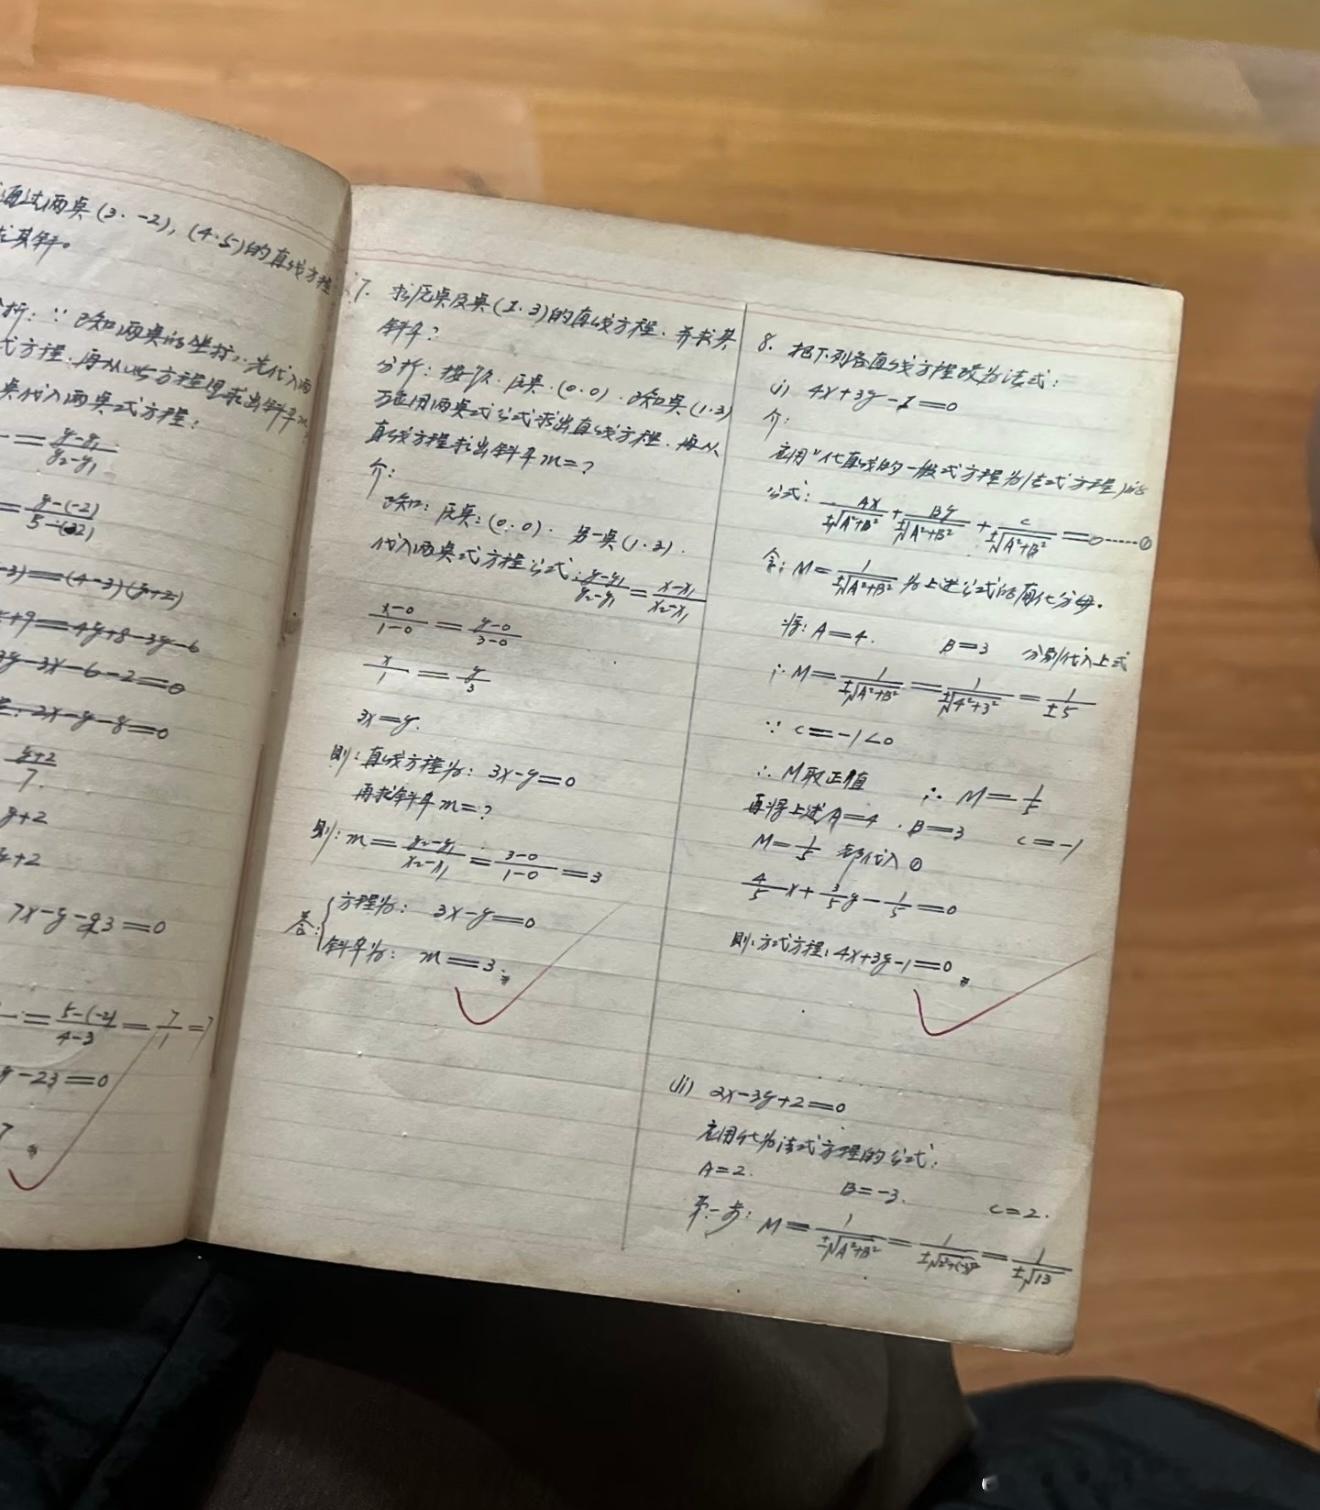 通过两点(3.-2),(4.5)的直线方程
求其斜
析:∵已知两点的坐标,先代入两
式方程.再从此方程里求出斜率m
点代入两点式方程:
= y-y₁/y₂-y₁
= y-(-2)/5-(-2)
-3)=(4-3)(y+2)
+9=4y+8-3y-6
3y-3x-6-2=0
2x-y-8=0
y+2/7
y+2
+2
7x-y-23=0
= 5-(-2)/4-3 = 7/1 =7
y-23=0
7
7. 求原点及点(1.3)的直线方程.并求其
斜率?
分析:按 原点.(0.0).已知点(1.3)
应用两点式公式求出直线方程.再从
直线方程求出斜率m=?
介:
已知:原点:(0.0).另一点(1.3).
代入两点式方程公式:y-y₁/y₂-y₁ = x-x₁/x₂-x₁
x-0/1-0 = y-0/3-0
x/1 = y/3
3x=y.
則:直线方程为: 3x-y=0
再求斜率m=?
則:m= y₂-y₁/x₂-x₁ = 3-0/1-0 =3
答:{方程为: 3x-y=0
斜率为: m=3.
8. 把下列各直线方程改为法式:
(i) 4x+3y-1=0
介:
应用"化直线的一般式方程为法式方程)的
公式: Ax/±√A²+B² + By/±√A²+B² + C/±√A²+B² =0……①
令:M= 1/±√A²+B² 为上述公式的 化分母.
将:A=4. B=3 分别代入上式
∴M= 1/±√A²+B² = 1/±√4²+3² = 1/±5
∵ C=-1<0
∴M取正值 ∴M= 1/5
再将上述A=4.B=3 C=-1
M= 1/5 代入①
4/5x+3/5y-1/5=0
則:方式方程:4x+3y-1=0.
(ii) 2x-3y+2=0
应用化为法式方程的公式:
A=2. B=-3. C=2.
第一步: M= 1/±√A²+B² = 1/±√2²+(-3)² = 1/±√13